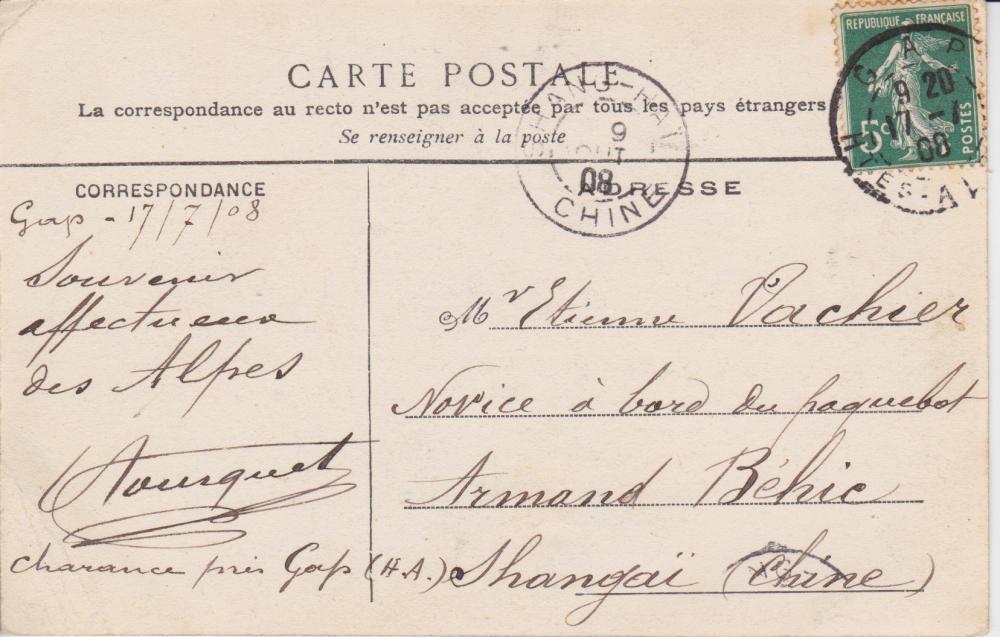 CARTE POSTALE
La correspondance au recto n'est pas acceptée par tous les pays étrangers
Se renseigner à la poste
REPUBLIQUE FRANÇAISE
5c
POSTES
GAP
9 20
17 - 7
08
SHANG-HAÏ
9
AOUT
08
CHINE
CORRESPONDANCE
Gap - 17/7/08
Souvenir
affectueux
des Alpes
Charance près Gap (H.A.)
ADRESSE
Mr Etienne Vachier
Novice à bord du paquebot
Armand Béhic
Shangaï (Chine)